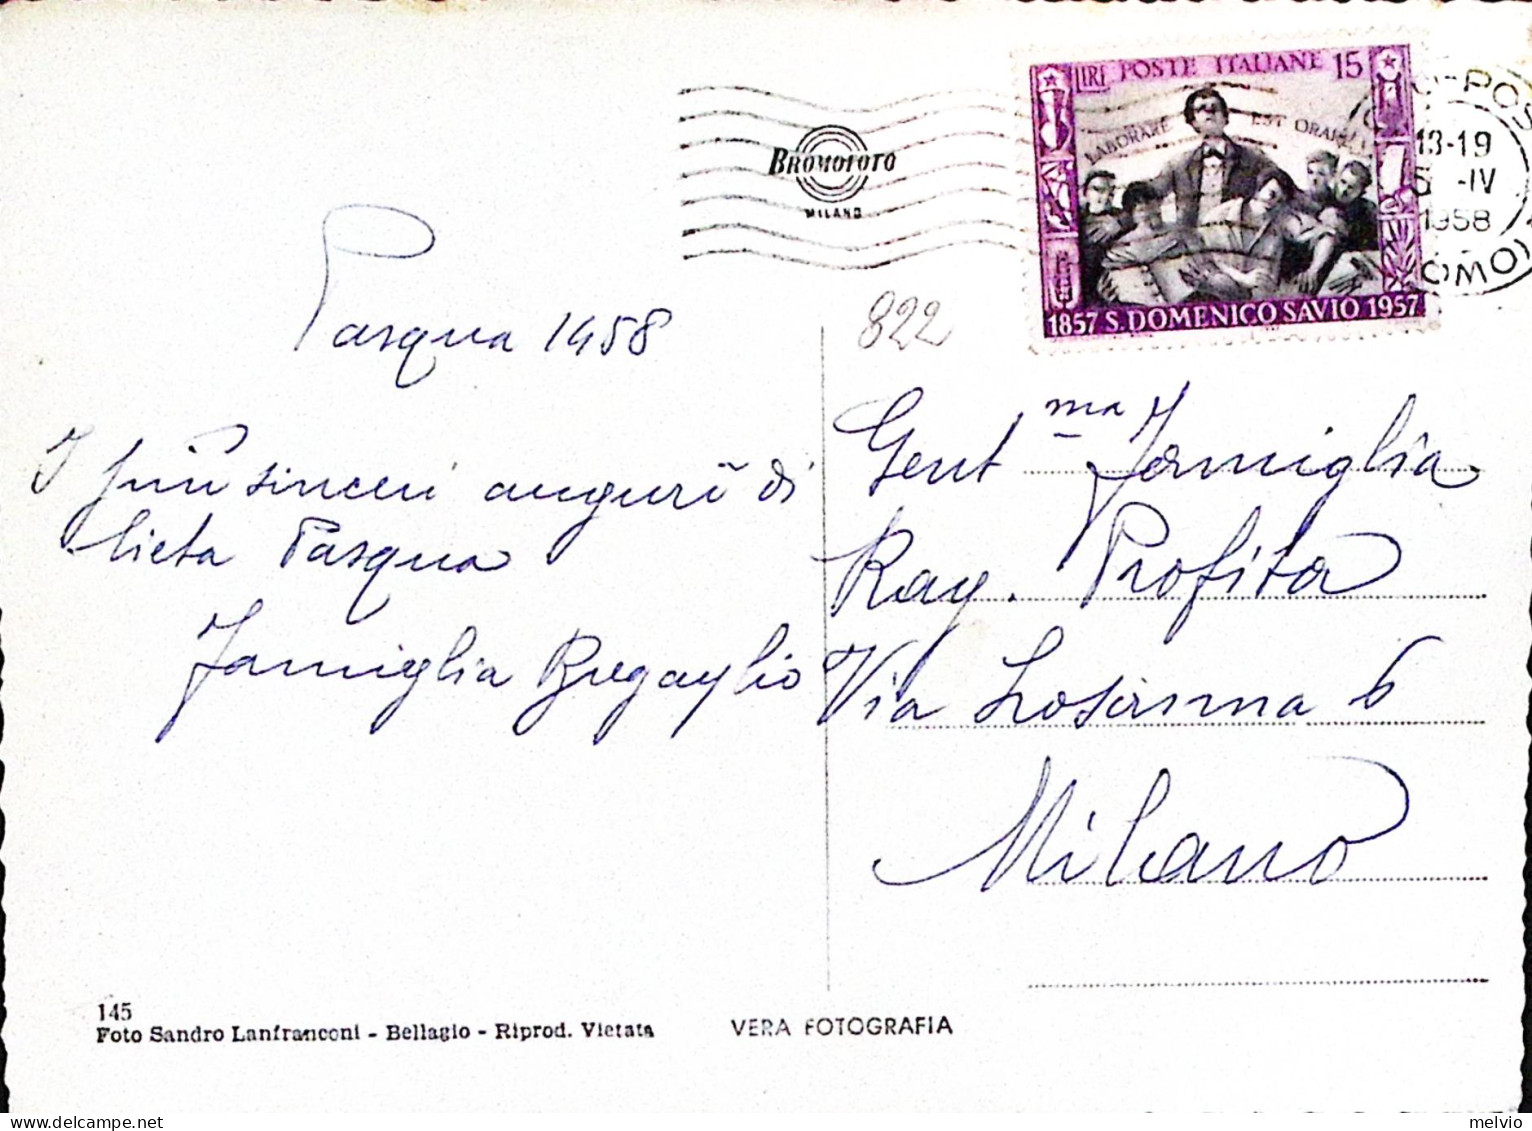 LIRE POSTE ITALIANE 15
LABORARE EST ORARE
1857 S. DOMENICO SAVIO 1957
13-19
-IV
1958
BROMOFOTO
MILANO
822
Pasqua 1958
I più sinceri auguri di
lieta Pasqua
Famiglia
Gent ma Famiglia
Rag. Profita
Via Losanna 6
Milano
145
Foto Sandro Lanfranconi - Bellagio - Riprod. Vietata
VERA FOTOGRAFIA
melvio